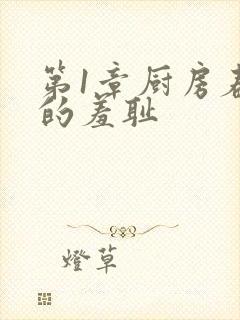 第1章厨房
的羞耻
燈草